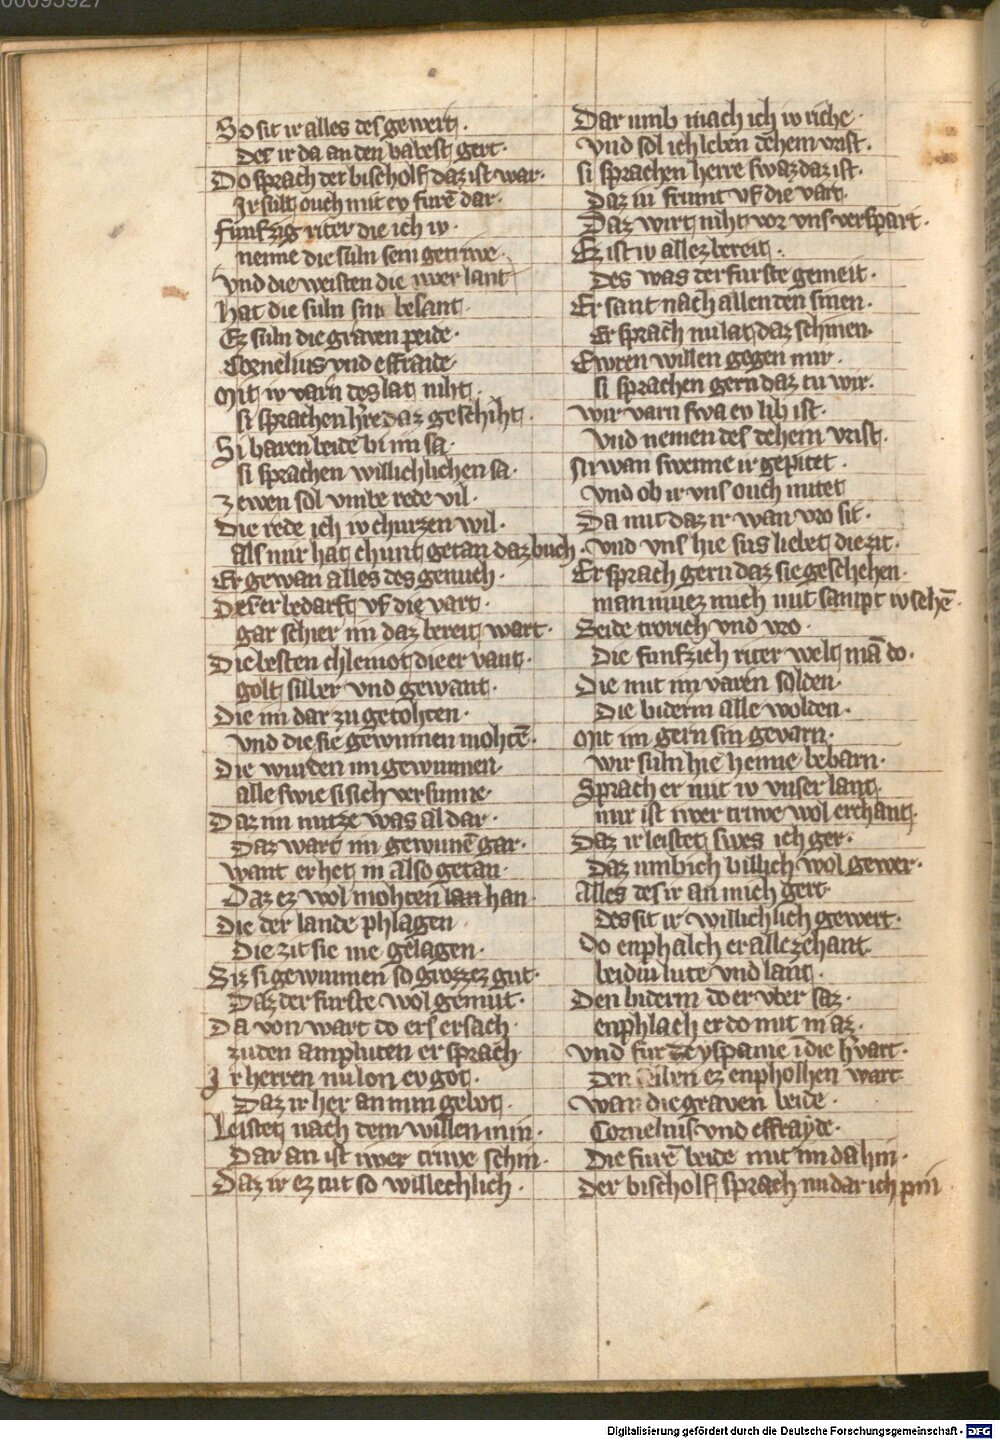 So sit ir alles des gewert ·
Des ir da an den babest gert ·
Do sprach der bischolf daz ist war ·
Ir sult ouch mit ev furē dar ·
funfzig riter die ich iv ·
nenne die suln sein getriwe ·
vnd die weisten die iwer lant
hat die suln sin besant
Ez suln die graven peide ·
Cornelius vnd effraide ·
Mit iv varn des lat niht ·
si sprachen h're daz geschiht ·
Si baren beide bi im sa ·
si sprachen willichlichen sa ·
zewen sol vmbe rede vil ·
Die rede ich iv churzen wil ·
als mir hat chunt getan daz buch ·
Er gewan alles des genuch ·
Des er bedarft vf die vart ·
gar schier im daz bereit wart ·
Die besten chleinot die er vant ·
golt silber vnd gewant ·
Die im dar zu getohten ·
vnd die sie gewinnen mohtē ·
Die wurden im gewunnen ·
alle swie si sich versunne ·
Daz im nutze was al dar ·
Daz wart im gewunē gar ·
want er het in also getan ·
Daz ez wol mohten lan han
Die der lande phlagen
Die zit sie nie gelagen ·
Siz si gewunnen so grozzez gut ·
Daz der furste wol gemut ·
Da von wart do ers ersach ·
zu den ampluten er sprach
Ir herren nu lon ev got ·
Daz ir her an min gebot ·
Leistet nach dem willen min ·
Dar an ist iwer triwe schin ·
Daz ir ez tut so willechlich ·
Dar umb mach ich iv riche ·
vnd sol ich leben dehein vrist ·
si sprachen herre swaz daz ist ·
Daz iu frumt vf die vart ·
Daz wirt niht vor vns verspart ·
Ez ist iv allez bereit ·
Des was der furste gemeit ·
Er sant nach allen den sinen ·
Er sprach nu lat daz schinen
Ewren willen gegen mir ·
si sprachen gern daz tu wir ·
wir varn swa ev lib ist ·
vnd nemen des dehein vrist ·
swenne ir gepitet ·
vnd ob ir vns ouch mitet
Da mit daz ir wan vro sit ·
vnd vns hie sus liebet die zit ·
Er sprach gern daz sie geschehen ·
man muez mich mit sampt iv sehē ·
Beide trorich vnd vro ·
Die funfzich riter welt mā do ·
Die mit im varen solden ·
Die biderm alle wolden ·
Mit im gern sin gevarn ·
wir suln hie heime bebarn ·
Sprach er mit iv vnser lant ·
mir ist iwer triwe wol erchant ·
Daz ir leistet swes ich ger ·
Daz umb ich billich wol gewer ·
Alles des ir an mich gert
Des sit ir willichlich gewert ·
do enphalch er alle zehant
beidiu lute vnd lant ·
Den biderm do er vber saz ·
enphlach er do mit in az ·
vnd fur ze yspanie ī die h'vart ·
Den ez enpholhen wart
warn die graven beide ·
Cornelius vnd effrayde ·
Die furē beide mit im da hin ·
Der bischolf sprach nu dar ich pin